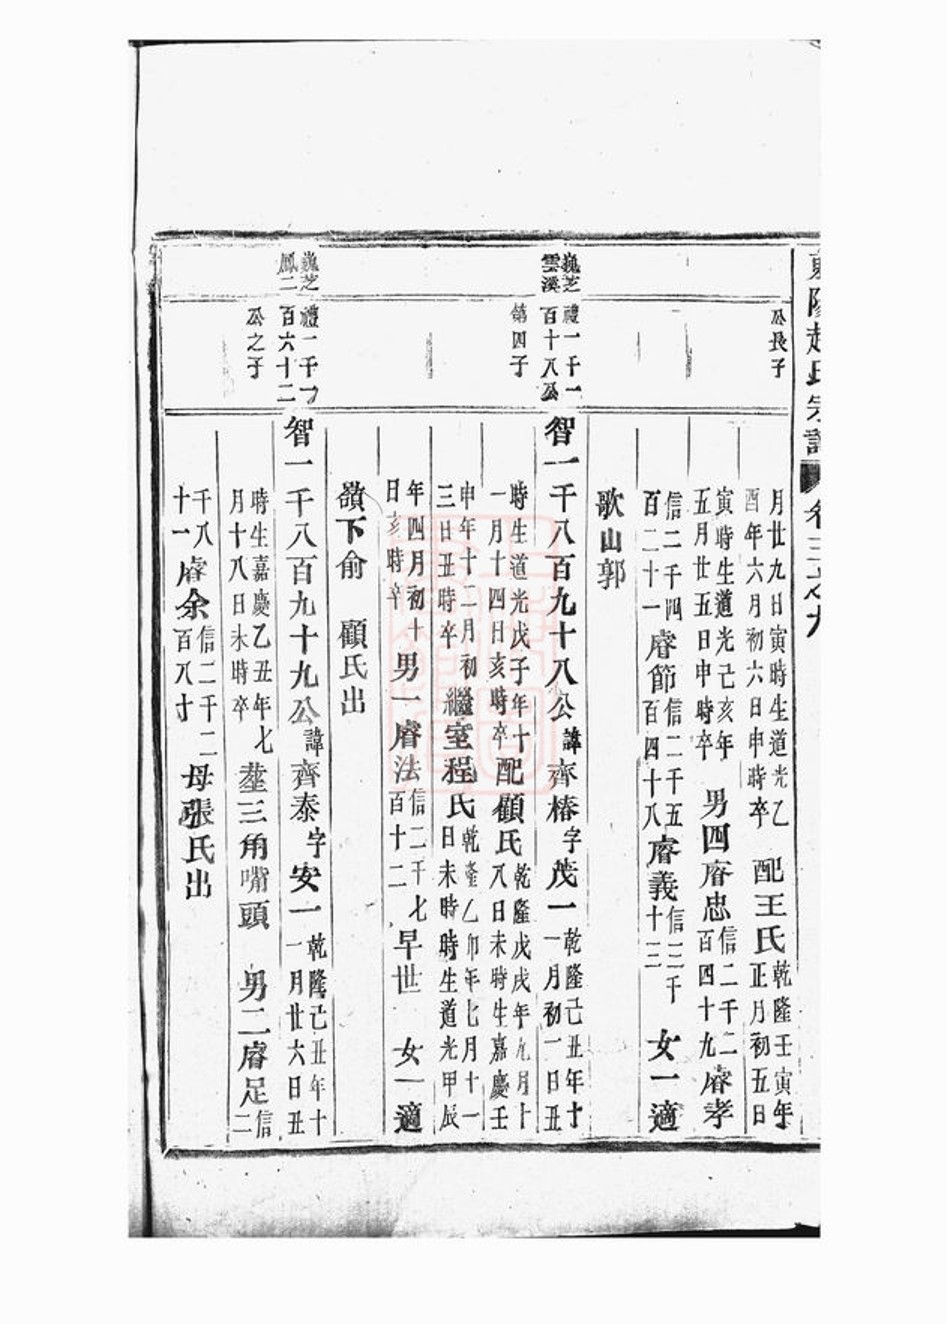 東陽趙氏宗譜 卷三之九
公長子
月廿九日寅時生道光乙
酉年六月初六日申時卒 配王氏 乾隆壬寅年
正月初五日
寅時生道光己亥年
五月廿五日申時卒 男四 睿忠 信二千二
百四十九 睿孝
信二千四
百二十一 睿節 信二千五
百四十八 睿義 信二千
十三 女一適
歌山郭
巍芝
雲溪
禮一千一
百十八公
第四子
智一千八百九十八公 諱齊椿 字茂一 乾隆己丑年十
一月初一日丑
時生道光戊子年十
一月十四日亥時卒 配顧氏 乾隆戊戌年九月十
八日未時生嘉慶壬
申年十二月初
三日丑時卒 繼室程氏 乾隆乙卯年七月十一
日未時時生道光甲辰
年四月初十
日亥時卒 男一 睿法 信二千七
百十二 早世 女一適
嶺下俞 顧氏出
巍芝
鳳二
禮一千
百六十二
公之子
智一千八百九十九公 諱齊泰 字安一 乾隆己丑年十
一月廿六日丑
時生嘉慶乙丑年七
月十八日未時卒 葬三角嘴頭 男二 睿足 信
二
千八
十一 睿余 信二千二
百八十 母張氏出